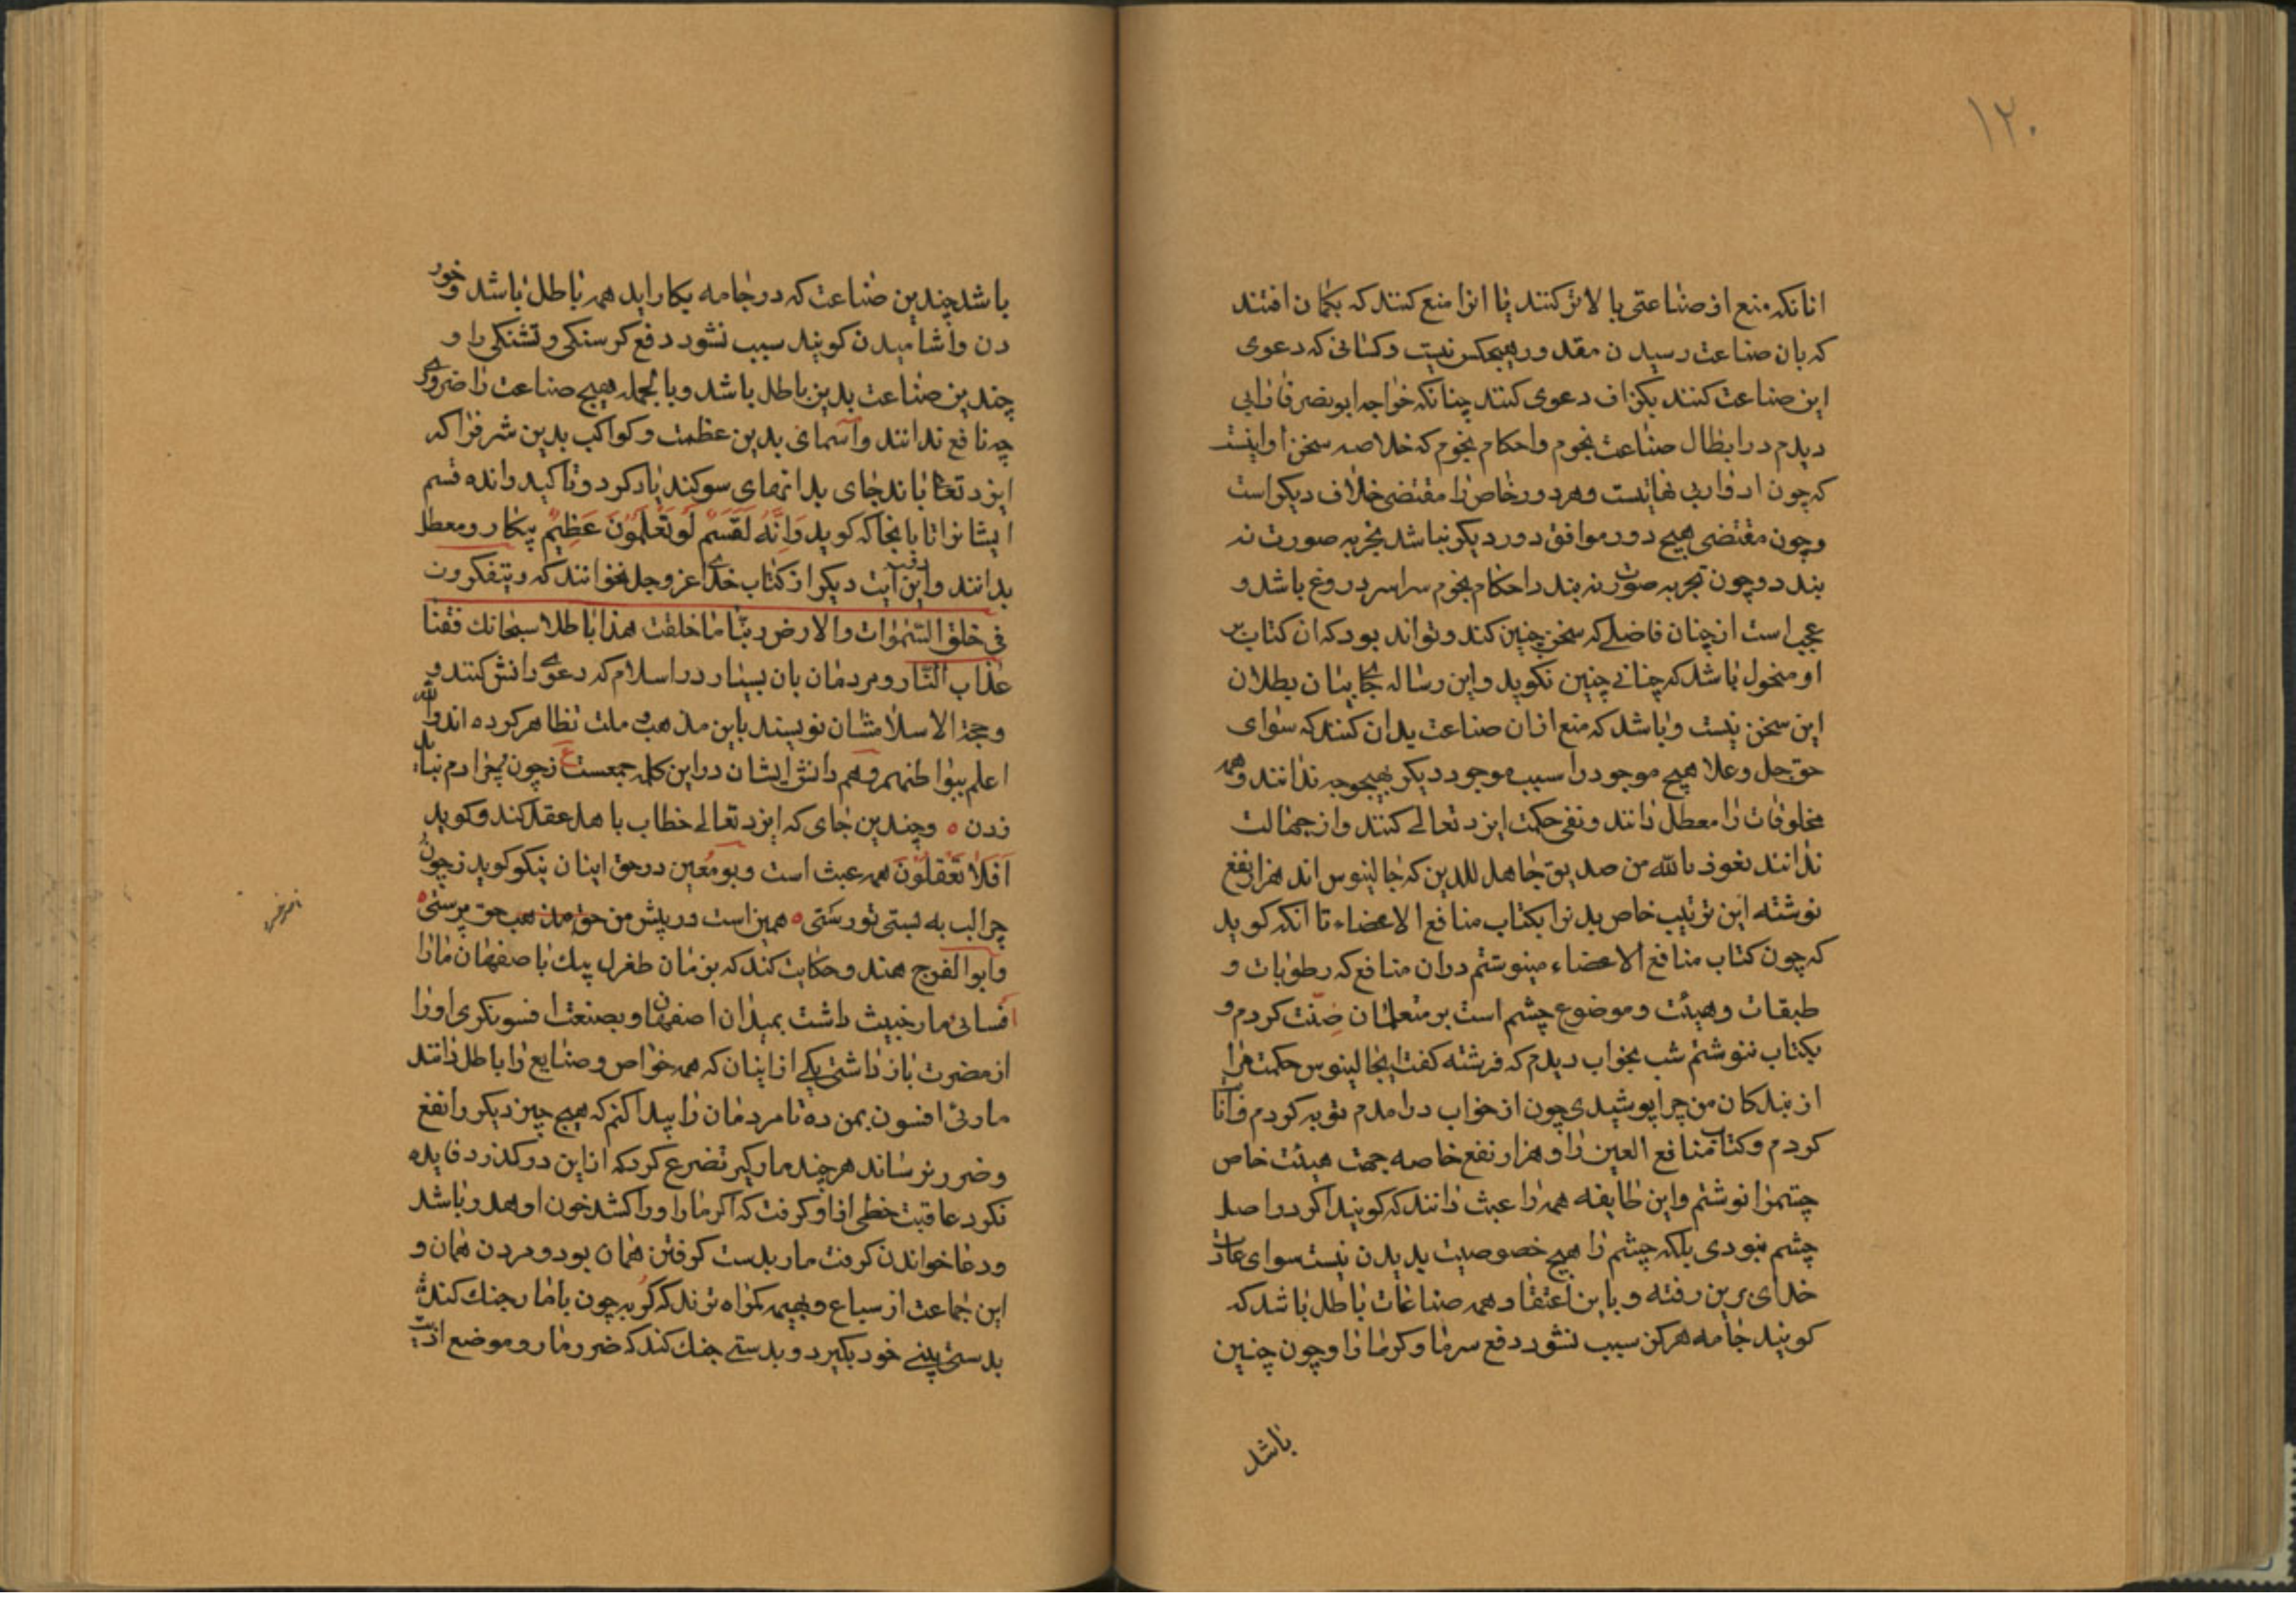 ۱۲۰
انانکه منع از صناعتی بالاتر کنند یا انرا منع کنند که بکمان افتند
که بان صناعت رسیدن مقدور هیچکس نیست و کسانی که دعوی
این صناعت کنند بکزاف دعوی کنند چنانکه خواجه ابو نصر فارابی
دیدم در ابطال صناعت نجوم و احکام نجوم که خلاصه سخن او اینست
که چون ادوار بی نهایتست و هر دور خاص را مقتضی خلاف دیکر است
و چون مقتضی هیچ دور موافق دور دیکر نباشد تجربه صورت نه
بندد و چون تجربه صورت نه بندد احکام نجوم سراسر دروغ باشد و
عجب است از چنان فاضلی که سخن چنین کند و تواند بود که ان کتاب بر
او منحول باشد که چنانی چنین نکوید و این رساله جای بیان بطلان
این سخن نیست و باشد که منع از ان صناعت بدان کنند که سوای
حق جل و علا هیچ موجود را سبب موجود دیکر بهیچوجه ندانند و همه
مخلوقات را معطل دانند و نفی حکمت ایزد تعالی کنند و از جهالت
ندانند نعوذ بالله من صدیق جاهل للدین که جالینوس اند هزار نفع
نوشته این ترتیب خاص بدنرا بکتاب منافع الاعضاء تا انکه کوید
که چون کتاب منافع الاعضاء مینوشتم دران منافع که رطوبات و
طبقات و هیئت و موضوع چشم است بر متعلمان ضنت کردم و
بکتاب ننوشتم شب بخواب دیدم که فرشته کفت ایجالینوس حکمت مرا
از بندکان من چرا پوشیدی چون از خواب درامدم توبه کردم
کردم و کتاب منافع العین را و هزار نفع خاصه جهت هیئت خاص
چشمرا نوشتم و این طایفه همه را عبث دانند که کویند اکر در اصل
چشم نبودی بلکه چشم را هیچ خصوصیت بدیدن نیست سوای عادت
خدای برین رفته و باین اعتقاد همه صناعات باطل باشد که
کویند جامه هرکز سبب نشود دفع سرما و کرما را و چون چنین
باشد
باشد چندین صناعت که در جامه بکار اید همه باطل باشد و خور
دن و اشامیدن کویند سبب نشود دفع کرسنکی و تشنکی را و
چندین صناعت بدین باطل باشد و بالجمله هیچ صناعت را ضروری
چه نافع ندانند و آسمان بدین عظمت و کواکب بدین شرف را که
ایزد تعالی باند جای بدانهای سوکند یاد کرد و تاکید و انده قسم
ایشانرا تا بانجا که کوید وَاِنَّهُ لَقَسَمٌ لَوْ تَعْلَمُونَ عَظِیمٌ بیکار و معطل
بدانند و این آیت دیکر از کتاب خدای عز و جل نخوانند که ویتفکرون
فی خلق السموات والارض ربنا ما خلقت هذا باطلا سبحانك فقنا
عذاب النار و مردمان بان بسیار در اسلام که دعوی دانش کنند و
حجة الاسلامشان نویسند باین مذهب و ملت تظاهر کرده اند و الله
اعلم ببواطنهم و هم دانش ایشان در این کلمه جمعست ع زچون چرا دم نباید
زدن ه و چندین جای که ایزد تعالی خطاب با اهل عقل کند و کوید
اَفَلَا تَعْقِلُونَ همه عبث است و بو معین در حق اینان نیکو کوید زچون
چرا لب به بستی تو رستی ه همین است در پیش من حق مذهب حق پرستی ه
و ابو الفرج هندو حکایت کند که بزمان طغرل بیك باصفهان مارا
افسائی مار خبیث داشت بمیدان اصفهان و بصنعت افسونکری اورا
از مضرت باز داشتی یکی از اینان که همه خواص و صنایع را باطل دانند
مار بی افسون بمن ده تا مردمان را پیدا کنم که هیچ چیز دیکر را نفع
و ضرر نرساند هرچند مارکیر تضرع کرد که از این درکذرد فایده
نکرد عاقبت خطی از او کرفت که اکر مار او را کشد خون او هدر باشد
ودعا خواندن کرفت مار بدست کرفتن همان بود و مردن همان و
این جماعت از سباع و بهیمه کمراه ترند که کربه چون با مار جنك کند
بدستی بینی خود بکیرد و بدستی جنك کند که ضرر مار و موضع اذیت